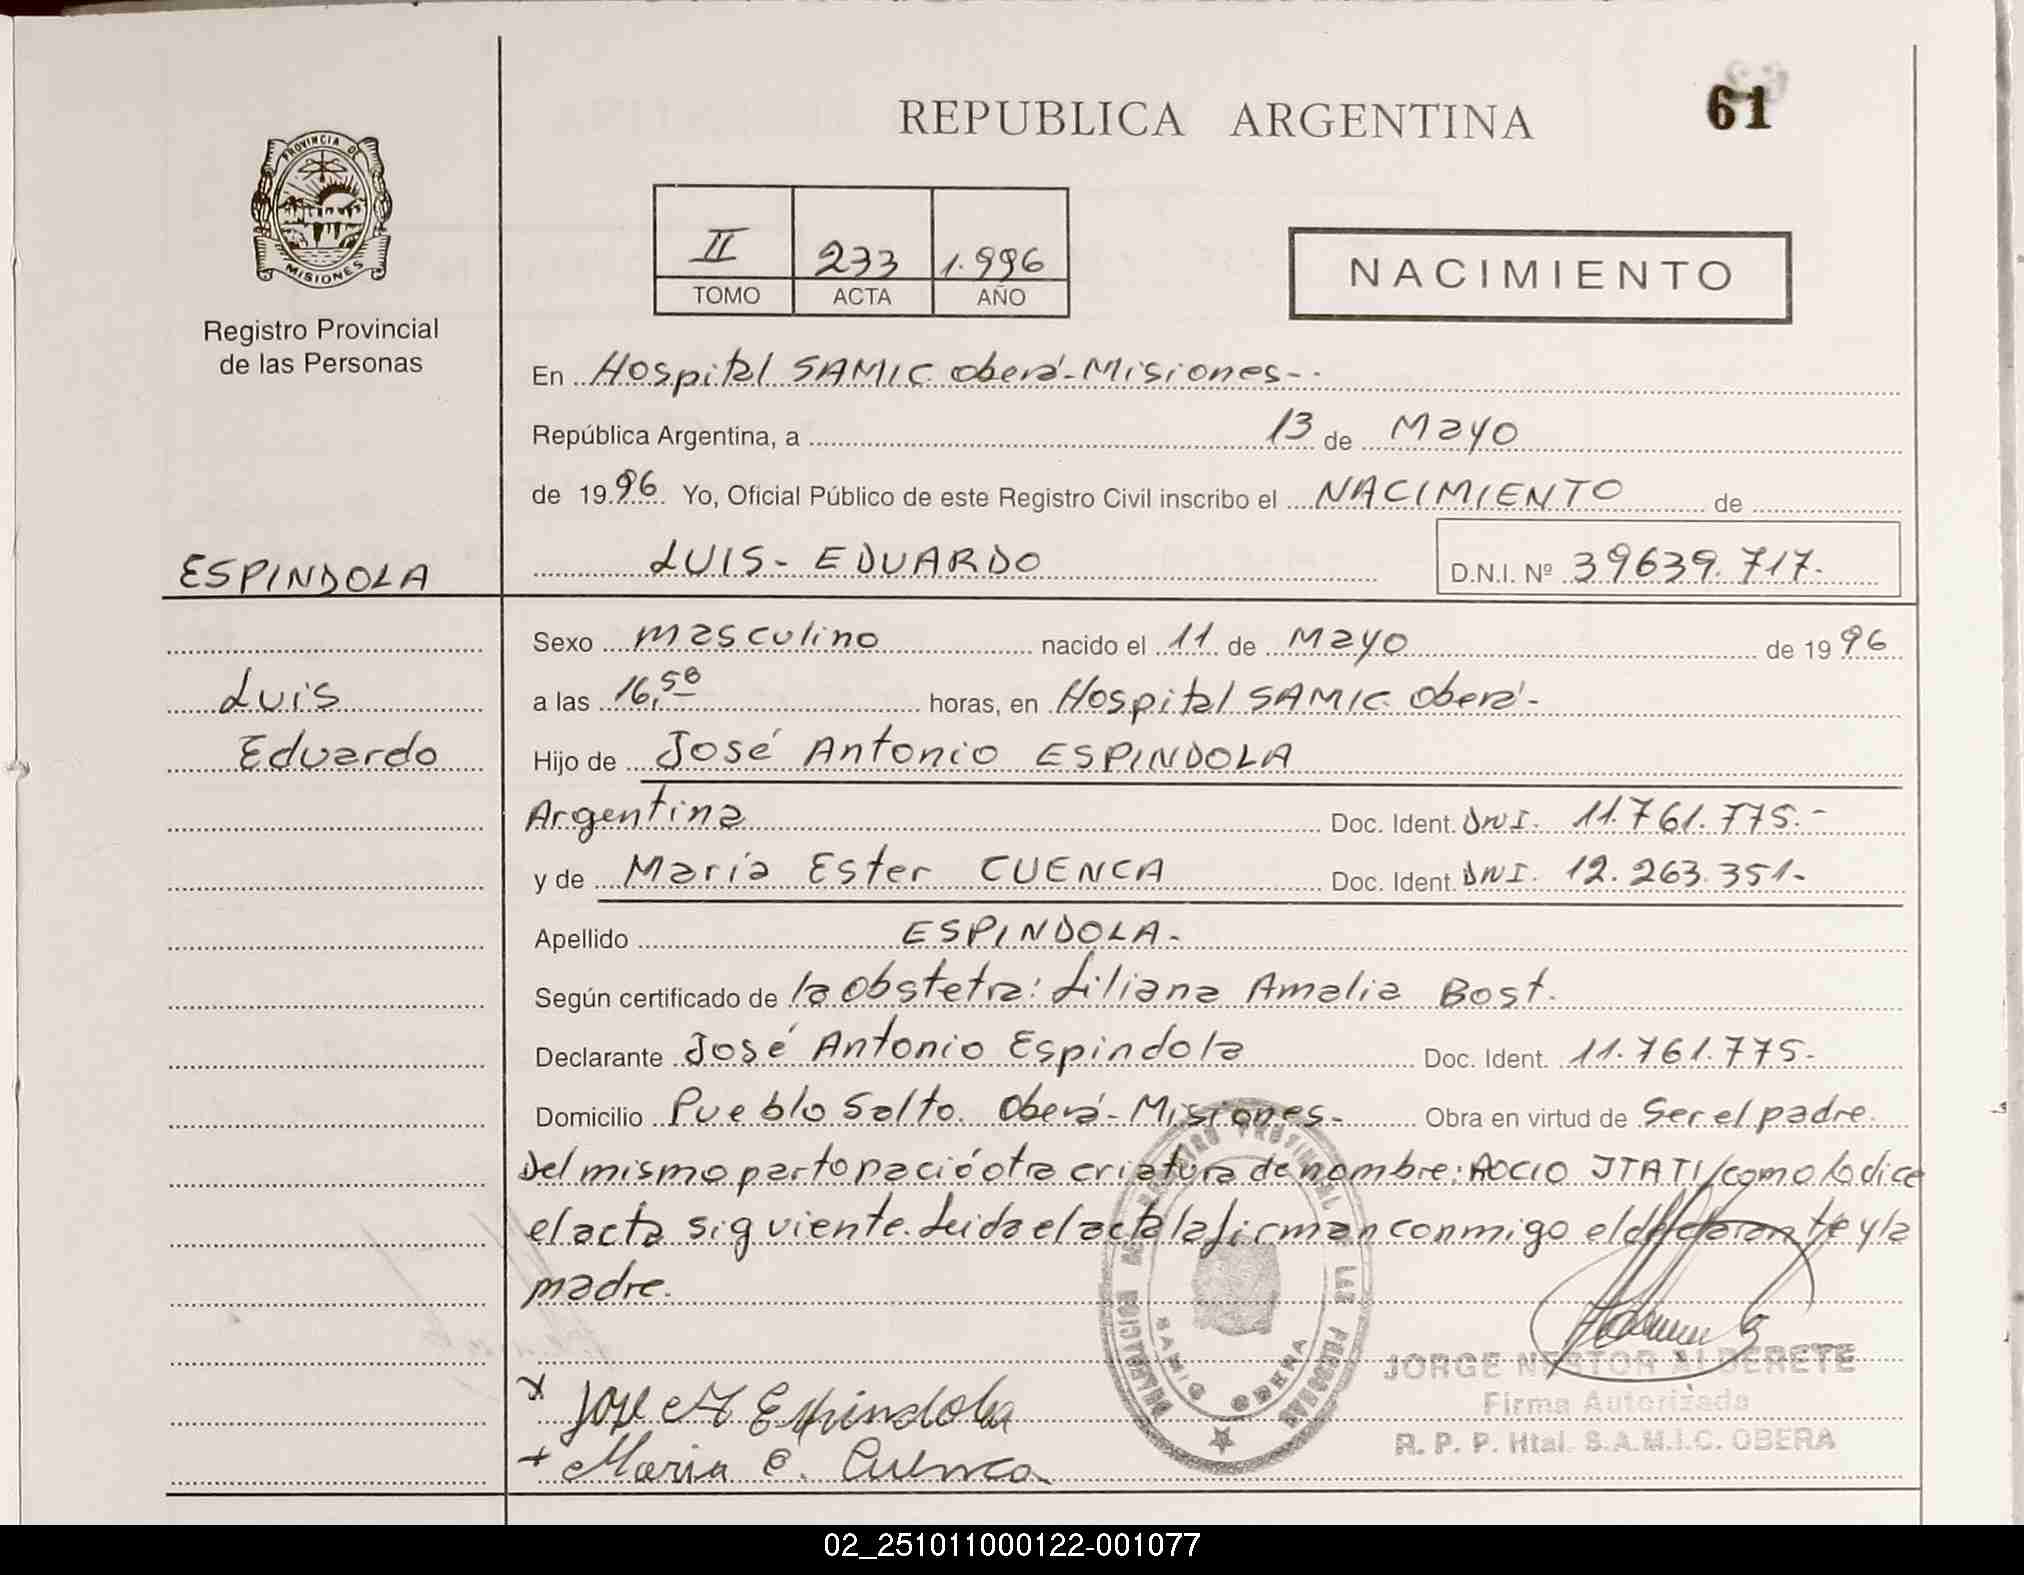 REPUBLICA ARGENTINA
61
PROVINCIA DE
MISIONES
Registro Provincial
de las Personas
II 233 1.996
TOMO ACTA AÑO
NACIMIENTO
En Hospital SAMIC. Oberá-Misiones--
República Argentina, a 13 de Mayo
de 1996 Yo, Oficial Público de este Registro Civil inscribo el NACIMIENTO de
ESPINDOLA
LUIS- EDUARDO D.N.I. Nº 39639.717.
Sexo masculino nacido el 11 de Mayo de 1996
Luis
a las 16,50 horas, en Hospital SAMIC. Oberá-
Eduardo
Hijo de José Antonio ESPINDOLA
Argentina Doc. Ident. DNI. 11.761.775.-
y de María Ester CUENCA Doc. Ident. DNI. 12.263.351-
Apellido ESPINDOLA-
Según certificado de la obstetra: Liliana Amalia Bost.
Declarante José Antonio Espindola Doc. Ident. 11.761.775-
Domicilio Pueblo Salto. Oberá-Misiones- Obra en virtud de Ser el padre.
Del mismo parto nació otra criatura de nombre: ROCIO ITATI/como lo dice
el acta siguiente. Leida el acta la firman conmigo el declarante y la
madre.
REGISTRO PROVINCIAL DE LAS PERSONAS
SAMIC OBERA
JORGE NESTOR ALDERETE
Firma Autorizada
R. P. P. Htal. S.A.M.I.C. OBERA
x Jose A Espindola
+ Maria E. Cuenca
02_251011000122-001077